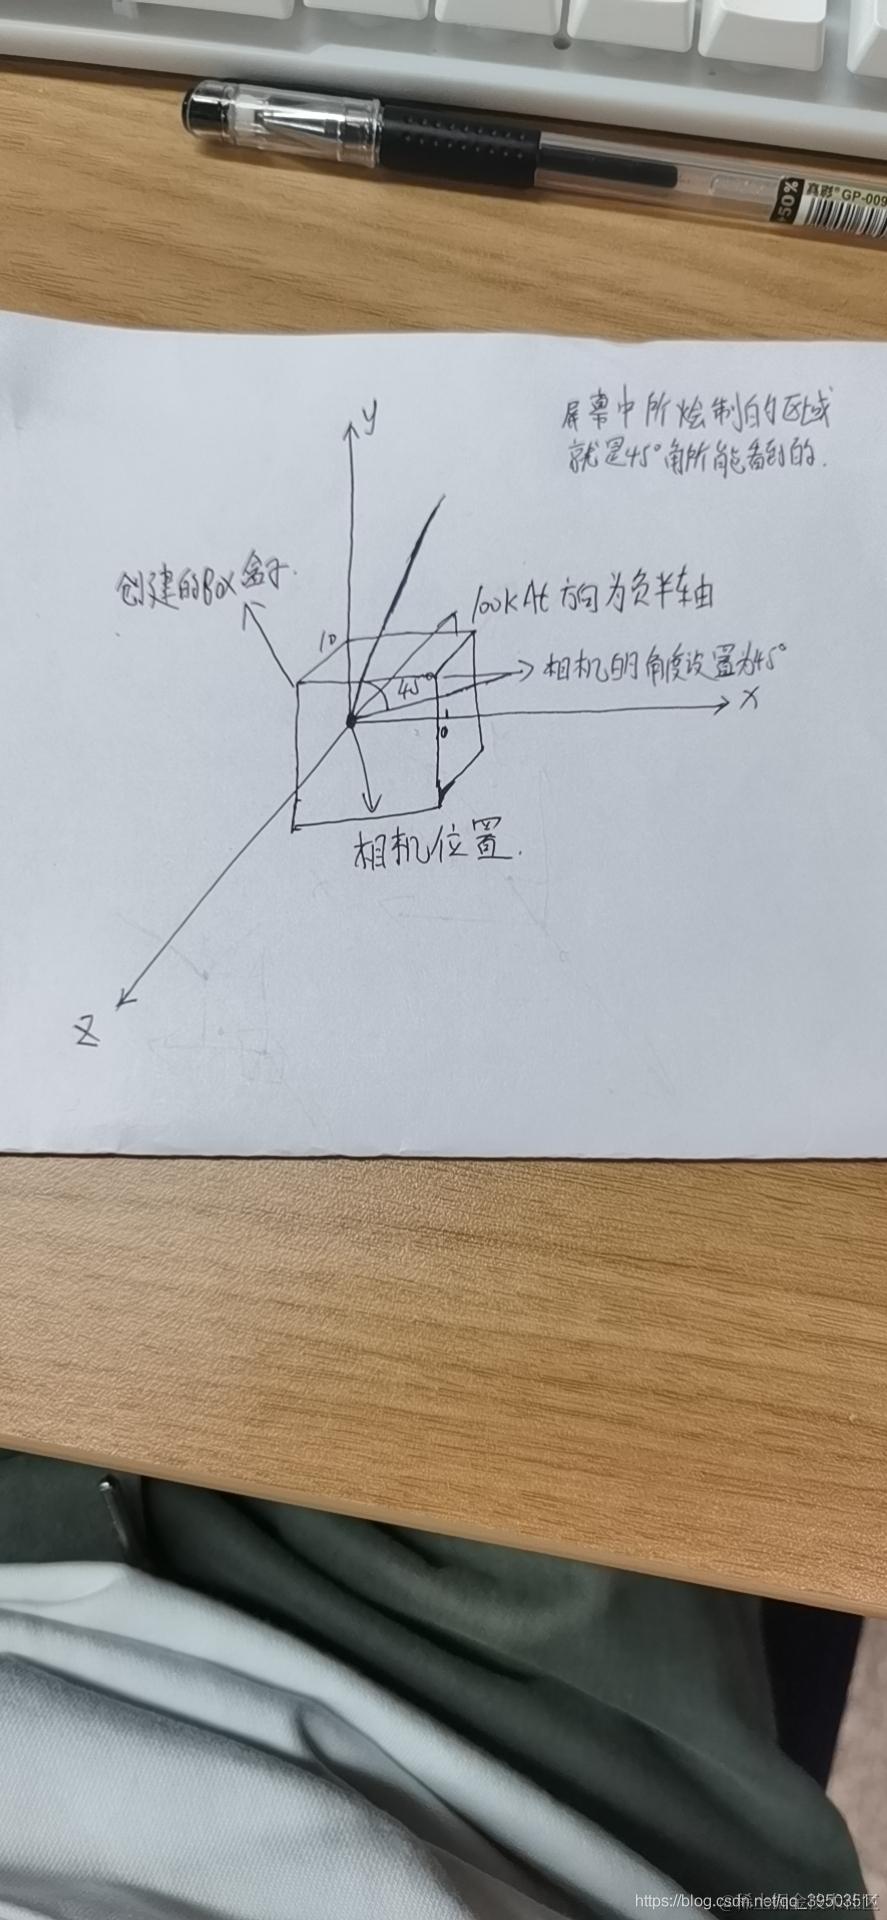 50%
真彩® GP-009
y
屏幕中所绘制的区域
就是45°角所能看到的.
创建的Box盒子.
lookAt 方向为负半轴由
10
45°
相机的角度设置为45°
x
相机位置.
z
https://blog.csdn.net/qq_39503511
@稀土掘金技术社区